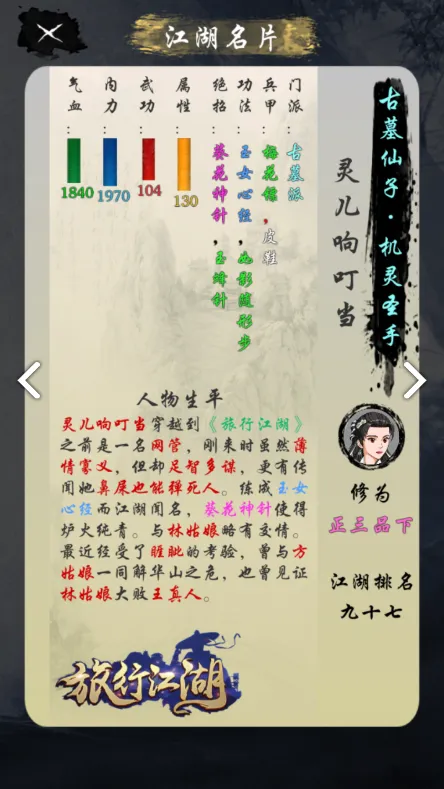 江湖名片
古墓仙子·机灵圣手
灵儿响叮当
门派：古墓派
兵甲：梅花镖，皮鞋
功法：玉女心经，如影随形步
绝招：葵花神针，玉蜂针
属性：130
武功：104
内力：1970
气血：1840
修为
正三品下
江湖排名
九十七
人物生平
灵儿响叮当穿越到《旅行江湖》
之前是一名网管，刚来时虽然薄
情寡义，但却足智多谋，更有传
闻她鼻屎也能弹死人。练成玉女
心经而江湖闻名，葵花神针使得
炉火纯青。与林姑娘略有交情。
最近经受了睚眦的考验，曾与方
姑娘一同解华山之危，也曾见证
林姑娘大败王真人。
旅行江湖